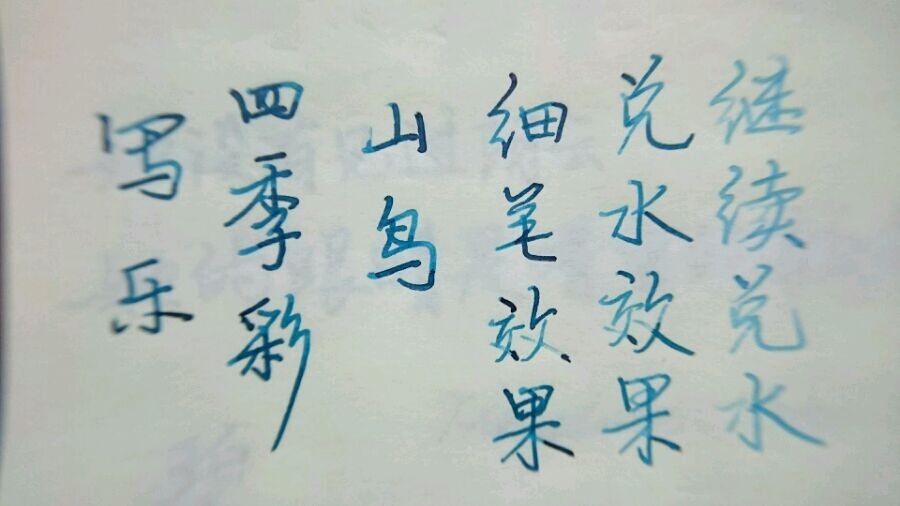 写乐
四季彩
山鸟
细笔效果
兑水效果
继续兑水